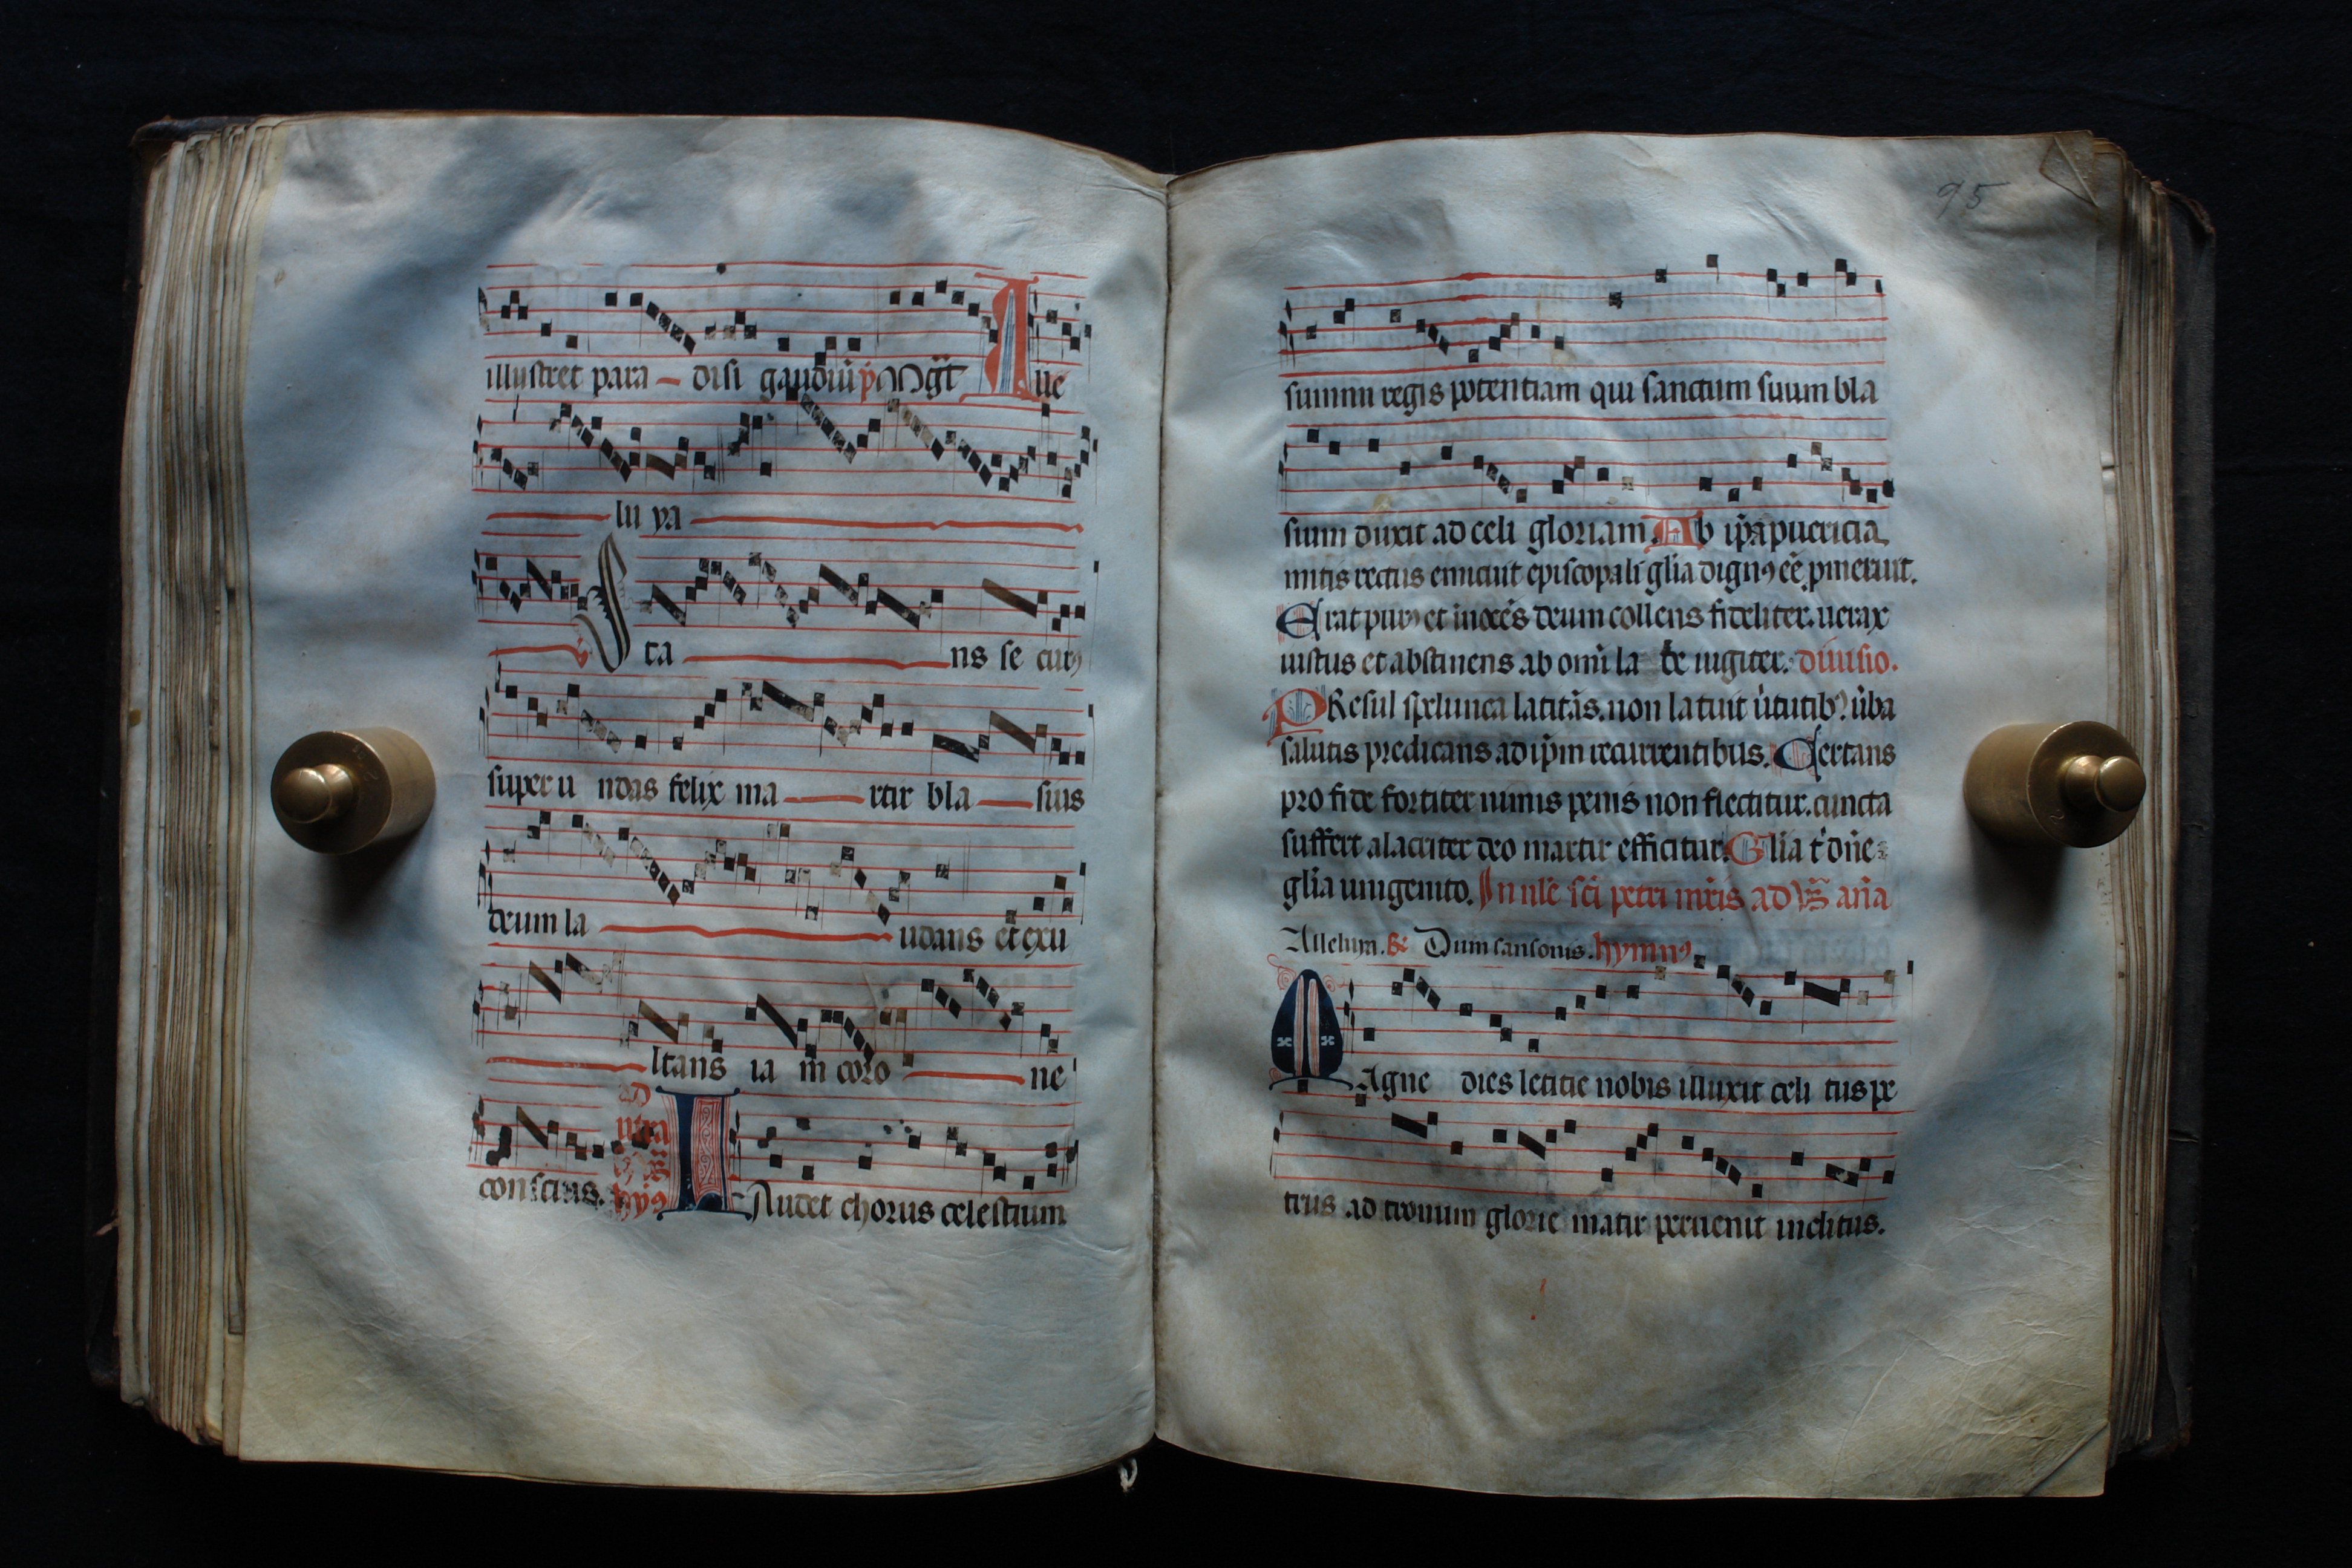 illustret para disi gaudiū p̄ ꝏgt̄ Alle
lu ya
Sta ns se curꝰ
super u ndas felix ma rtir bla sius
deum la udans et exu
ltans ia m coro ne
ad
utrasqꝫ
hyꝰ
conscius. Laudet chorus celestium
95
summi regis potentiam qui sanctum suum bla
sium duxit ad celi gloriam Ab ip̄a puericia
mitis rectus enituit episcopali glīa dignꝰ eē pmeruit.
Erat purꝰ et inocēs deum collens fideliter. uerax
iustus et abstinens ab omī la be iugiter. diuisio.
PResul spelunca latitās. non latuit u̇tutibꝰ. u̇ba
salutis predicans ad ip̄m recurrentibus. Certans
pro fide fortiter nimis penis non flectitur. cuncta
suffert alacriter deo martir efficitur. Glīa t' dn̄e
glīa unigenito. In nlē sc̄i petri mr̄is ad ꝟs̄ an̄a
Alleluya. R̄ Dum sansonis. hymnꝰ
MAgne dies letitie nobis illuxit celi tus pe
trus ad tronum glorie matir peruenit inclitus.